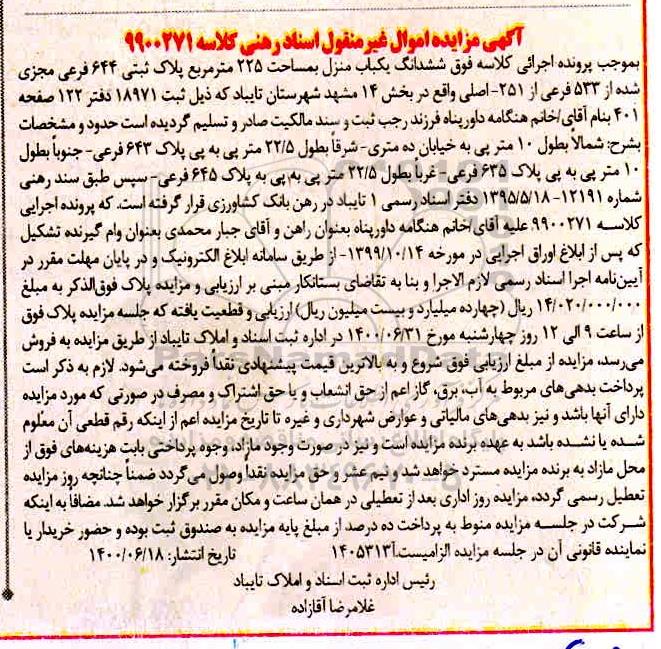 آگهی مزایده اموال غیرمنقول اسناد رهنی کلاسه ۹۹۰۰۲۷۱
بموجب پرونده اجرائی کلاسه فوق ششدانگ یکباب منزل بمساحت ۲۲۵ مترمربع پلاک ثبتی ۶۴۴ فرعی مجزی
شده از ۵۳۳ فرعی از ۲۵۱- اصلی واقع در بخش ۱۴ مشهد شهرستان تایباد که ذیل ثبت ۱۸۹۷۱ دفتر ۱۲۲ صفحه
۴۰۱ بنام آقای/خانم هنگامه داورپناه فرزند رجب ثبت و سند مالکیت صادر و تسلیم گردیده است حدود و مشخصات
بشرح: شمالاً بطول ۱۰ متر پی به خیابان ده متری- شرقاً بطول ۲۲/۵ متر پی به پی پلاک ۶۴۳ فرعی- جنوباً بطول
۱۰ متر پی به پی پلاک ۶۳۵ فرعی- غرباً بطول ۲۲/۵ متر پی به پی به پلاک ۶۴۵ فرعی- سپس طبق سند رهنی
شماره ۱۲۱۹۱- ۱۳۹۵/۵/۱۸ دفتر اسناد رسمی ۱ تایباد در رهن بانک کشاورزی قرار گرفته است. که پرونده اجرایی
کلاسه ۹۹۰۰۲۷۱ علیه آقای/خانم هنگامه داورپناه بعنوان راهن و آقای جبار محمدی بعنوان وام گیرنده تشکیل
که پس از ابلاغ اوراق اجرایی در مورخه ۱۳۹۹/۱۰/۱۴- از طریق سامانه ابلاغ الکترونیک و در پایان مهلت مقرر در
آیین‌نامه اجرا اسناد رسمی لازم الاجرا و بنا به تقاضای بستانکار مبنی بر ارزیابی و مزایده پلاک فوق‌الذکر به مبلغ
۱۴/۰۲۰/۰۰۰/۰۰۰ ریال (چهارده میلیارد و بیست میلیون ریال) ارزیابی و قطعیت یافته که جلسه مزایده پلاک فوق
از ساعت ۹ الی ۱۲ روز چهارشنبه مورخ ۱۴۰۰/۰۶/۳۱ در اداره ثبت اسناد و املاک تایباد از طریق مزایده به فروش
می‌رسد، مزایده از مبلغ ارزیابی فوق شروع و به بالاترین قیمت پیشنهادی نقداً فروخته می‌شود. لازم به ذکر است
پرداخت بدهی‌های مربوط به آب، برق، گاز اعم از حق انشعاب و یا حق اشتراک و مصرف در صورتی که مورد مزایده
دارای آنها باشد و نیز بدهی‌های مالیاتی و عوارض شهرداری و غیره تا تاریخ مزایده اعم از اینکه رقم قطعی آن معلوم
شده یا نشده باشد به عهده برنده مزایده است و نیز در صورت وجود مازاد، وجوه پرداختی بابت هزینه‌های فوق از
محل مازاد به برنده مزایده مسترد خواهد شد و نیم عشر و حق مزایده نقداً وصول می‌گردد ضمناً چنانچه روز مزایده
تعطیل رسمی گردد، مزایده روز اداری بعد از تعطیلی در همان ساعت و مکان مقرر برگزار خواهد شد. مضافاً به اینکه
شرکت در جلسه مزایده منوط به پرداخت ده درصد از مبلغ پایه مزایده به صندوق ثبت بوده و حضور خریدار یا
نماینده قانونی آن در جلسه مزایده الزامیست.آ۱۴۰۵۳۱۳ تاریخ انتشار: ۱۴۰۰/۰۶/۱۸
رئیس اداره ثبت اسناد و املاک تایباد
غلامرضا آقازاده